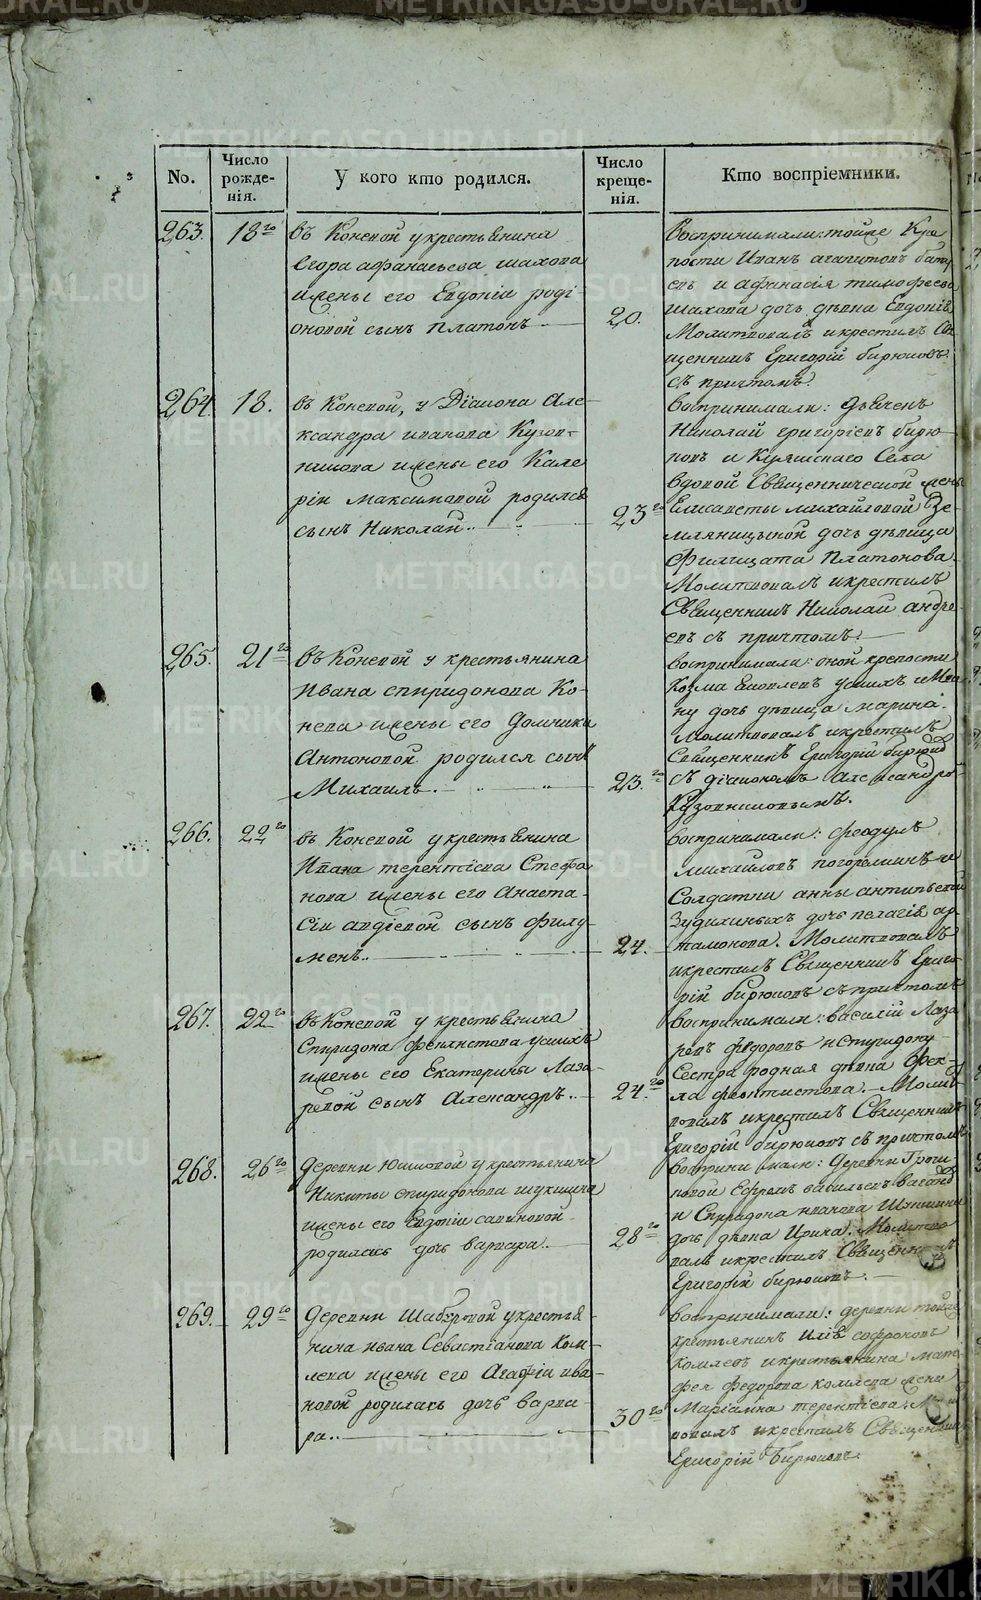 No.
Число рожде-нія.
У кого кто родился.
Число креще-нія.
Кто воспріемники.
263.
18го
въ Коневой у крестьянина
Егора афанасьева шахова
и жены его Евдокіи роді-
оновой сынъ платонъ
20.
Воспринимали: тойже Кре
пости Иванъ агапитовъ
и афанасія тимофеева
шахова дочь дѣвка Евдокія
Молитвовалъ и крестилъ Свя
щенникъ Григорій бирюковъ
съ причтомъ.
264
18.
въ Коневой, у Діакона Але-
ксандра иванова Кузов-
никова и жены его Вале
рін максимовой родился
сынъ Николай.
23го
воспринимали: дьячекъ
Николай григоріевъ бирю-
ковъ и Куяшскаго Села
вдовой Священнической жены
Елисаветы михайловой Зе-
мляницыной дочь дѣвица
Филицата Платонова
Молитвовалъ и крестилъ
Священникъ Николай андре
евъ съ причтомъ.
265.
21го
въ Коневой у крестьянина
Ивана спиридонова Ко-
нева и жены его Домники
Антоновой родился сынъ
Михаилъ.
23го
воспринимали: оной крепости
Козма Яковлевъ усыхъ
дочь дѣвица марина.
молитвовалъ и крестилъ
Священникъ Григорій бирюков
съ діакономъ Александром
Кузовниковымъ.
266.
22го
въ Коневой у крестьянина
Ивана терентіева Стефа
нова и жены его Анаста-
сіи авдіевой сынъ филу-
менъ.
24.
воспринимали: феодулъ
михайловъ погорелкинъ и
Солдатки анны антипьевой
Зудихиныхъ дочь пелагія ар-
тамонова. Молитвовалъ
и крестилъ Священникъ Григо-
рій бирюковъ съ причтомъ
267.
22го
въ Коневой у крестьянина
Спиридона феоктистова усыхъ
и жены его Екатерины Лаза-
ревой сынъ Александръ.
24го
воспринимали: василій Лаза
ревъ федоровъ и Спиридону
Сестра родная дѣвка Фек-
ла феоктистова. Молит
вовалъ и крестилъ Священникъ
Григорій бирюковъ съ причтомъ
268.
26го
деревни Юшковой у крестьянина
Никиты спиридонова щукшина
и жены его Евдокіи савиновой
родилась дочь варвара.
28го
воспринимали: деревни
Ефремъ васильевъ
и Спиридона иванова
дочь дѣвка Ирина. Молитво
валъ и крестилъ Священникъ
Григорій бирюковъ.
269.
29го
Деревни Шаберовой у крестья-
нина ивана Севастіанова Ком-
лева и жены его Агафіи ива-
новой родилась дочь варва-
ра.
30го
воспринимали: деревни тойже
крестьянинъ Илія софроновъ
Комлевъ и крестьянина мат-
фея федорова комлева жена
Маріамна терентіева.
вовалъ и крестилъ Священникъ
Григорій Бирюковъ.
METRIKI.GASO-URAL.RU